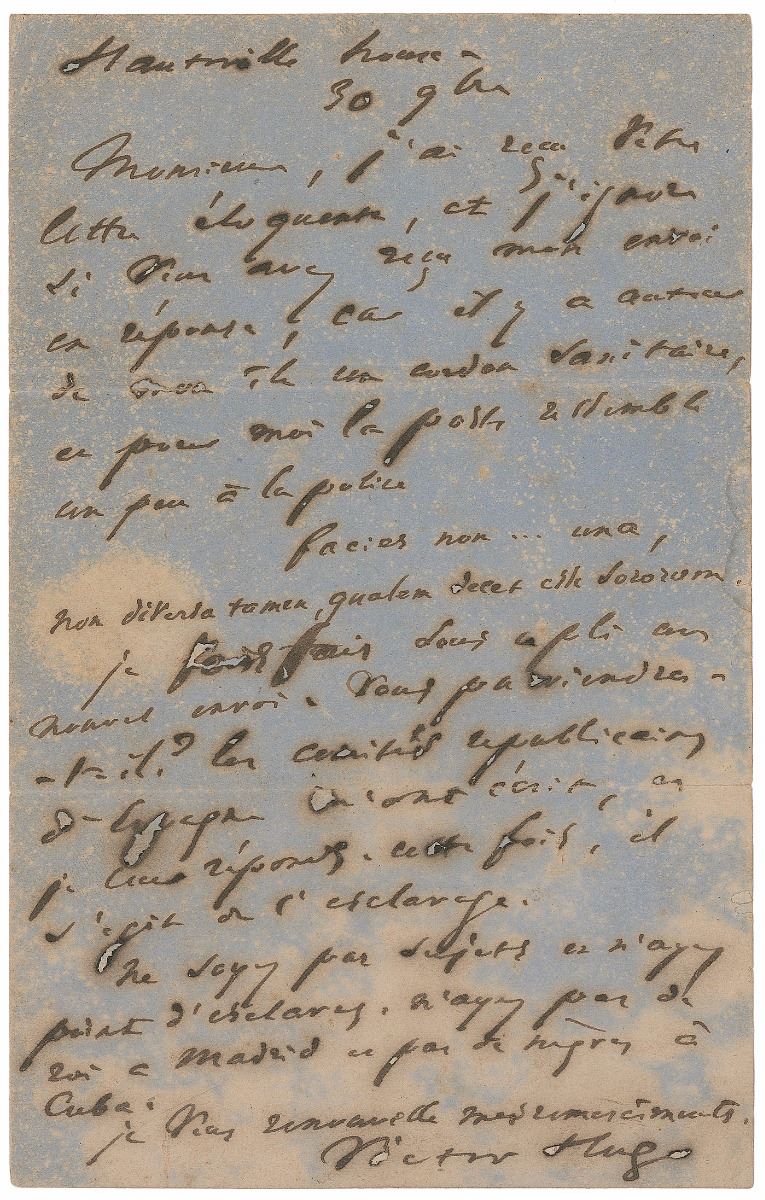 Hauteville house –
30 9bre
Monsieur, j'ai reçu votre
lettre éloquente, et j'ignore
si vous avez reçu mon envoi
en réponse ; car il y a autour
de mon île un cordon sanitaire,
et pour moi la poste ressemble
un peu à la police
facies non ... una,
non diversa tamen, qualem decet esse sororum.
je fais sous ce pli un
nouvel envoi. Vous parviendra-
-t-il? les comités républicains
d'Espagne m'ont écrit, et
je leur réponds. cette fois, il
s'agit de l'esclavage.
Ne soyez pas sujets et n'ayez
point d'esclaves. n'ayez pas de
roi à Madrid et pas de nègres à
Cuba.
je vous renouvelle mes remerciements.
Victor Hugo